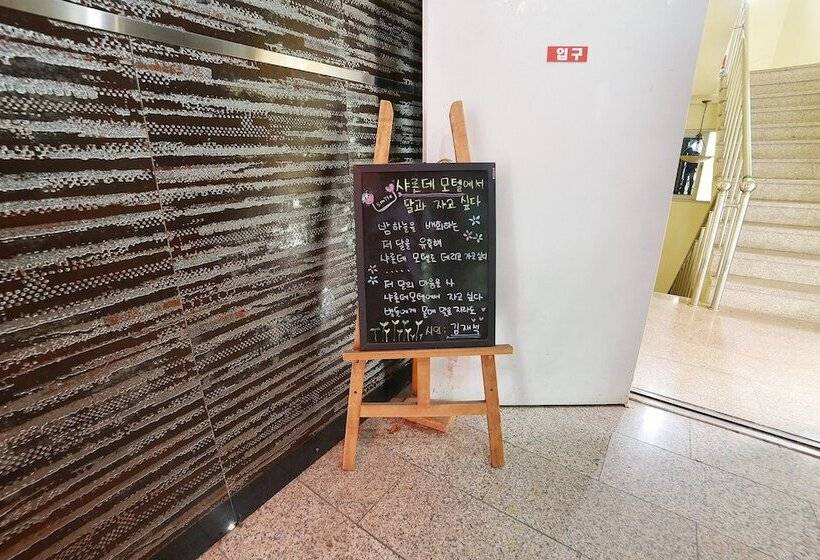 입구
smile
샤롤데 모텔에서
달과 자고 싶다
밤하늘을 배회하는
저 달을 유혹해
샤롤데 모텔로 데리고 가고 싶다
.....
저 달의 마음을 나
샤롤데모텔에서 자고 싶다
몸에 멍
시인: 김재